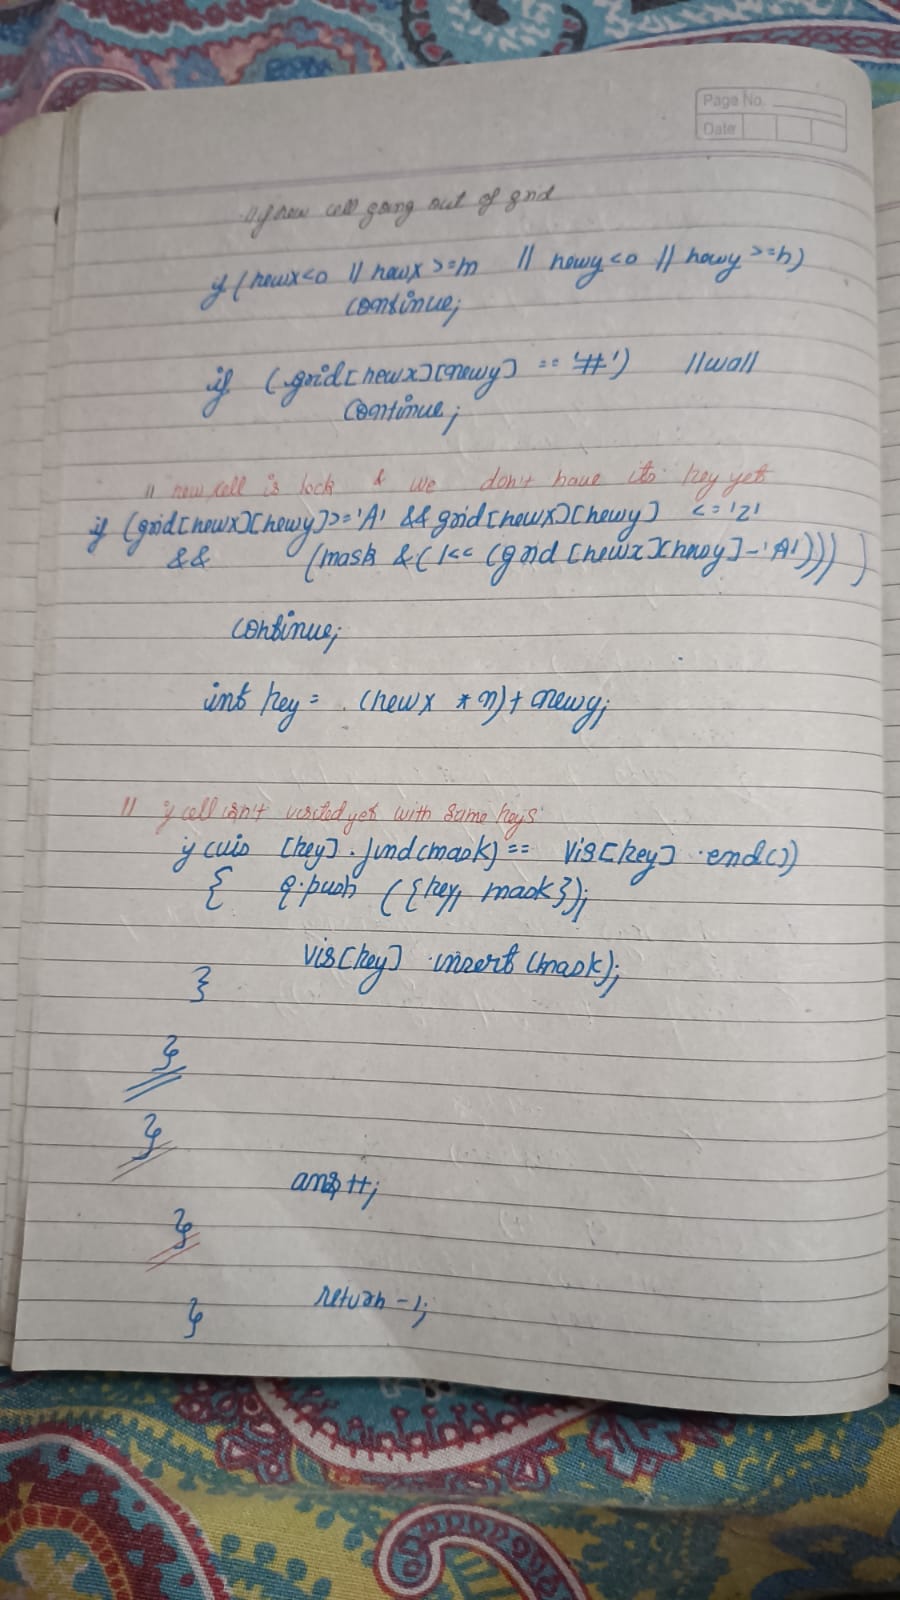 Page No.
Date
// if new cell going out of grid
if (newx<0 || newx >=m || newy<0 || newy >=n)
continue;
if (grid[newx][newy] == '#') //wall
continue;
// new cell is lock & we don't have its key yet
if (grid[newx][newy]>='A' && grid[newx][newy] <='Z'
&& (mask & (1<< (grid[newx][newy]-'A'))) )
continue;
int key = (newx * n)+ newy;
// if cell isn't visited yet with same keys
if (vis [key].find(mask) == vis[key].end())
{ q.push ({key, mask});
vis[key].insert(mask);
}
}
}
ans++;
}
return -1;
}